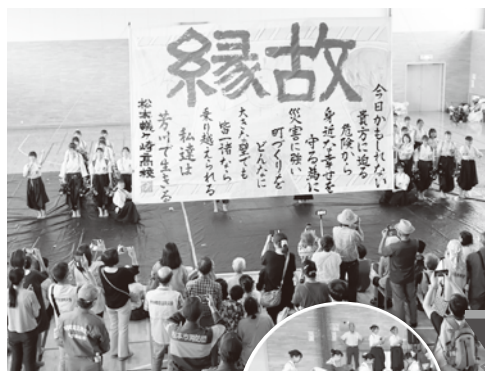 縁故
今日かもしれない
貴方に迫る
危険から
身近な幸せを
守る為に
災害に強い
町づくりを
どんなに
大きな壁でも
皆一諸なら
乗り越えられる
私達は
芳川で生きる
松本蟻ヶ崎高校
松本市消防団